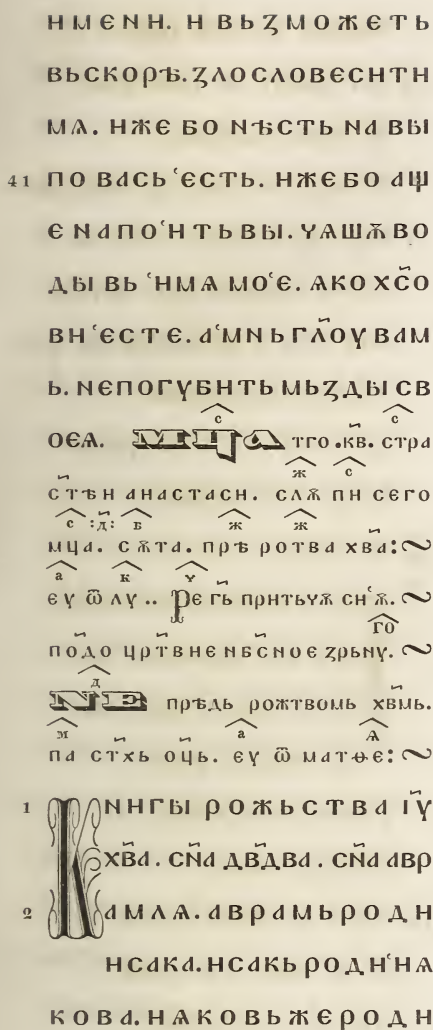 НМЕНН. Н ВЬꙀМОЖЕТЬ
ВЬСКОРѢ. ꙀЛОСЛОВЕСНТН
МѦ. НЖЕ БО NѢСТЬ NА ВЫ
41 ПО ВАСЬ ҅ЕСТЬ. НЖЕ БО АЩ
Е NАПО҅НТЬ ВЫ. ҮАШѪ ВО
ДЫ ВЬ ҅НМѦ МО҅Е. ѦКО ХС҃О
ВН ҅ЕСТЕ. А҅МNЬ ГЛ҃ОУ ВАМ
Ь. NЕПОГУБНТЬ МЬꙀДЫ СВ
ОЕѦ. МЦА тгоⷭ. кв҃. страⷭ
ст҃ѣн анастасн. слѫⷤ пнⷭ сего
мцⷭа. :д҃: сѫⷠта. прѣⷤ роⷤтва хв҃а:~
еⷶу ѿ лукⷱ.. Ре гь҃ прнтьуѫ сн҅ѫ.~
подо҃ црт҃вне нбс҃ное зрьнуⷢ҇ⷪ.~
NЕⷣ прѣдь рожтвомь хв҃мь.
паⷨ ст҃хь оц҃ь. еⷶу ѿ матѳеⷽ:~
1 КНГЫ РОЖЬСТВА ІУ҃
ХВ҃А. СN҃А ДВ҃ДВА. СN҃А АВР
2 АМЛѦ. АВРАМЬ РОДН
НСАКА. НСАКЬ РОДН҅НѦ
КОВА. НѦКОВЬЖЕ РОДН